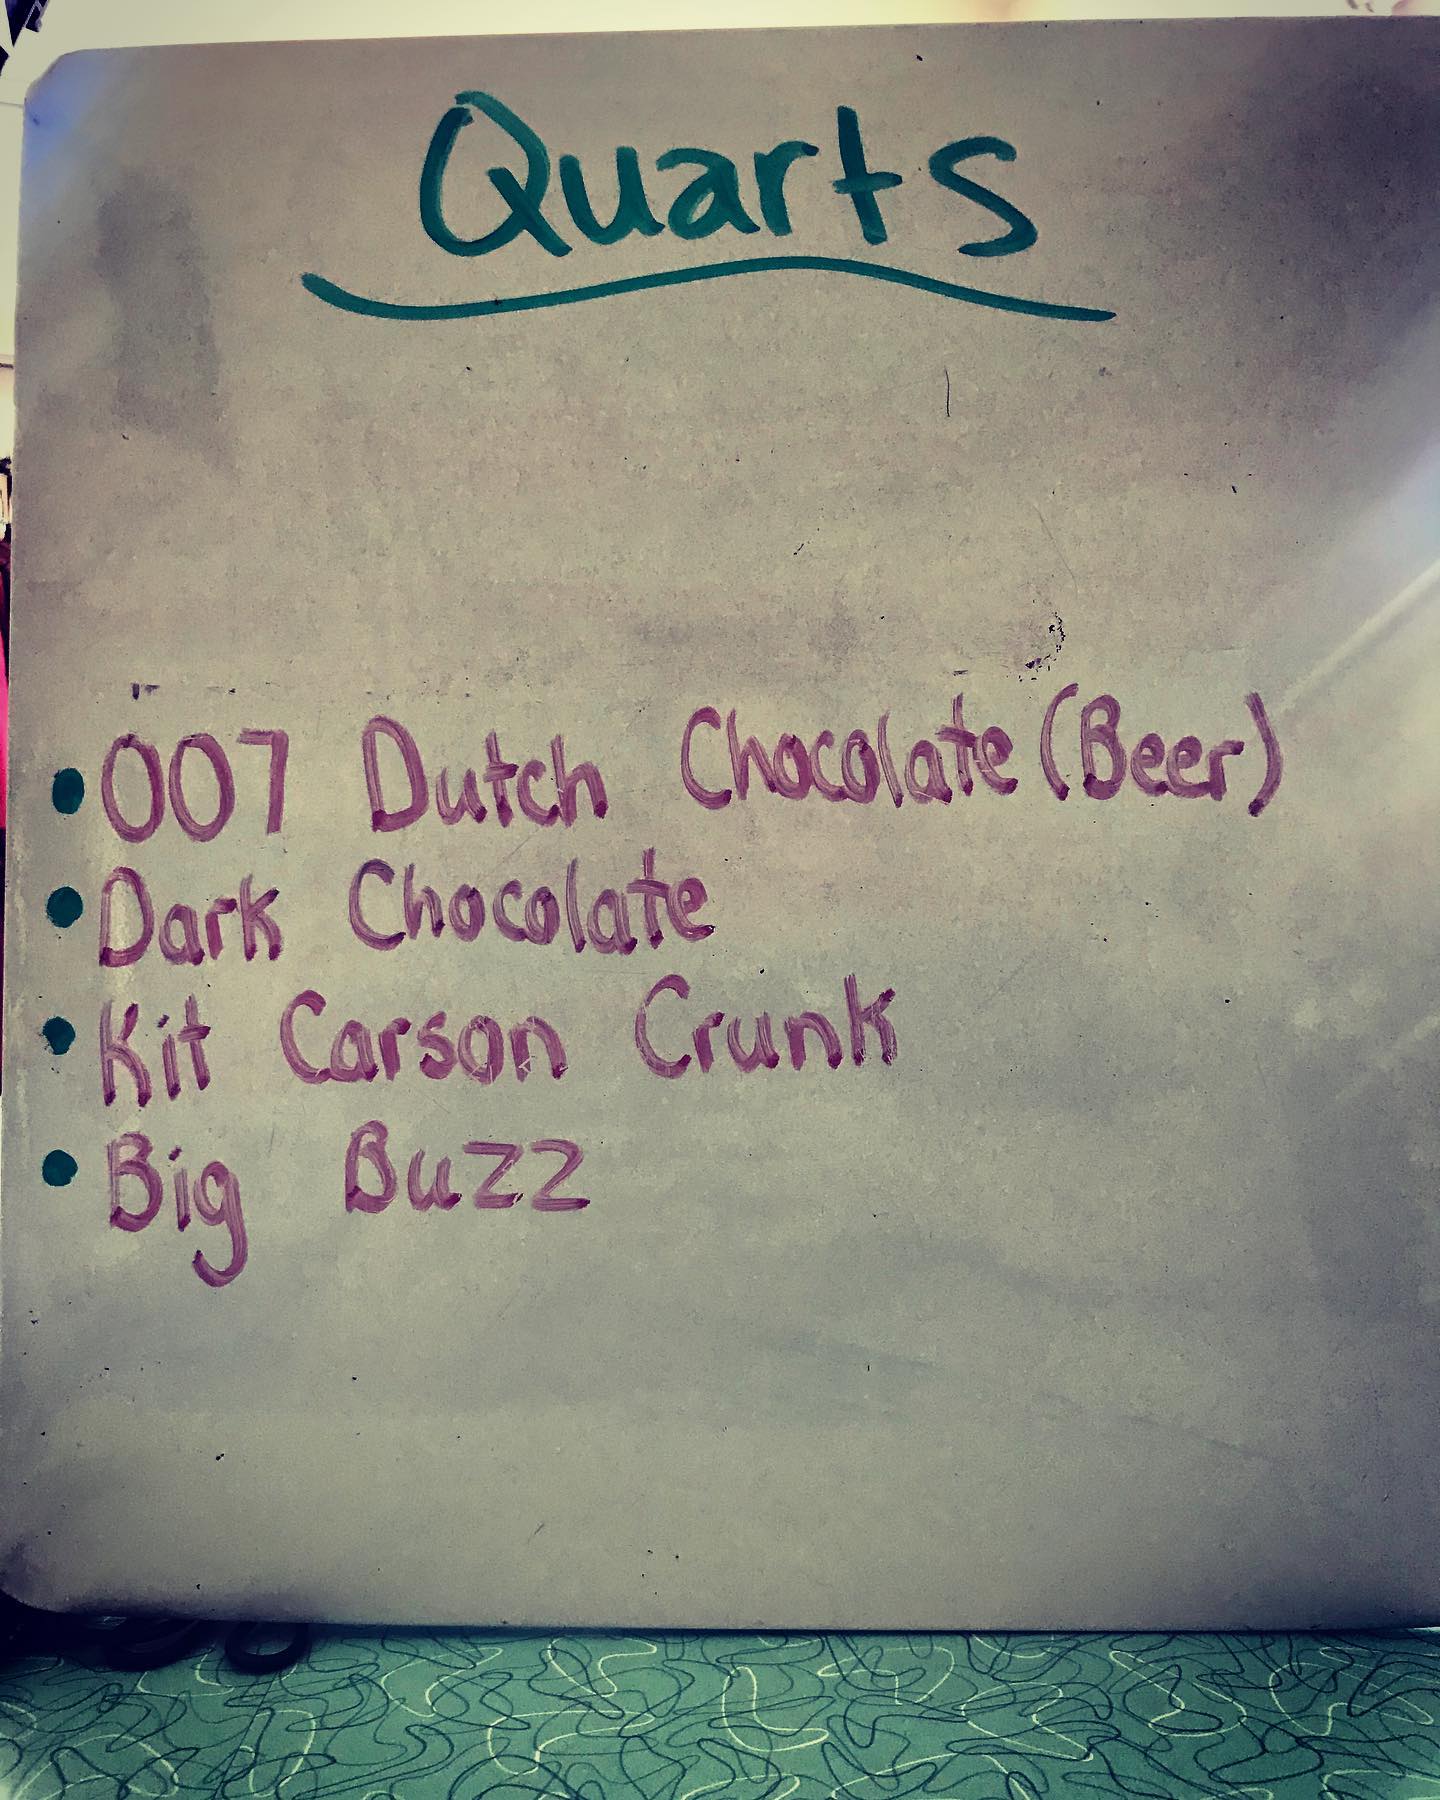 Quarts
• 007 Dutch Chocolate (Beer)
• Dark Chocolate
• Kit Carson Crunk
• Big Buzz